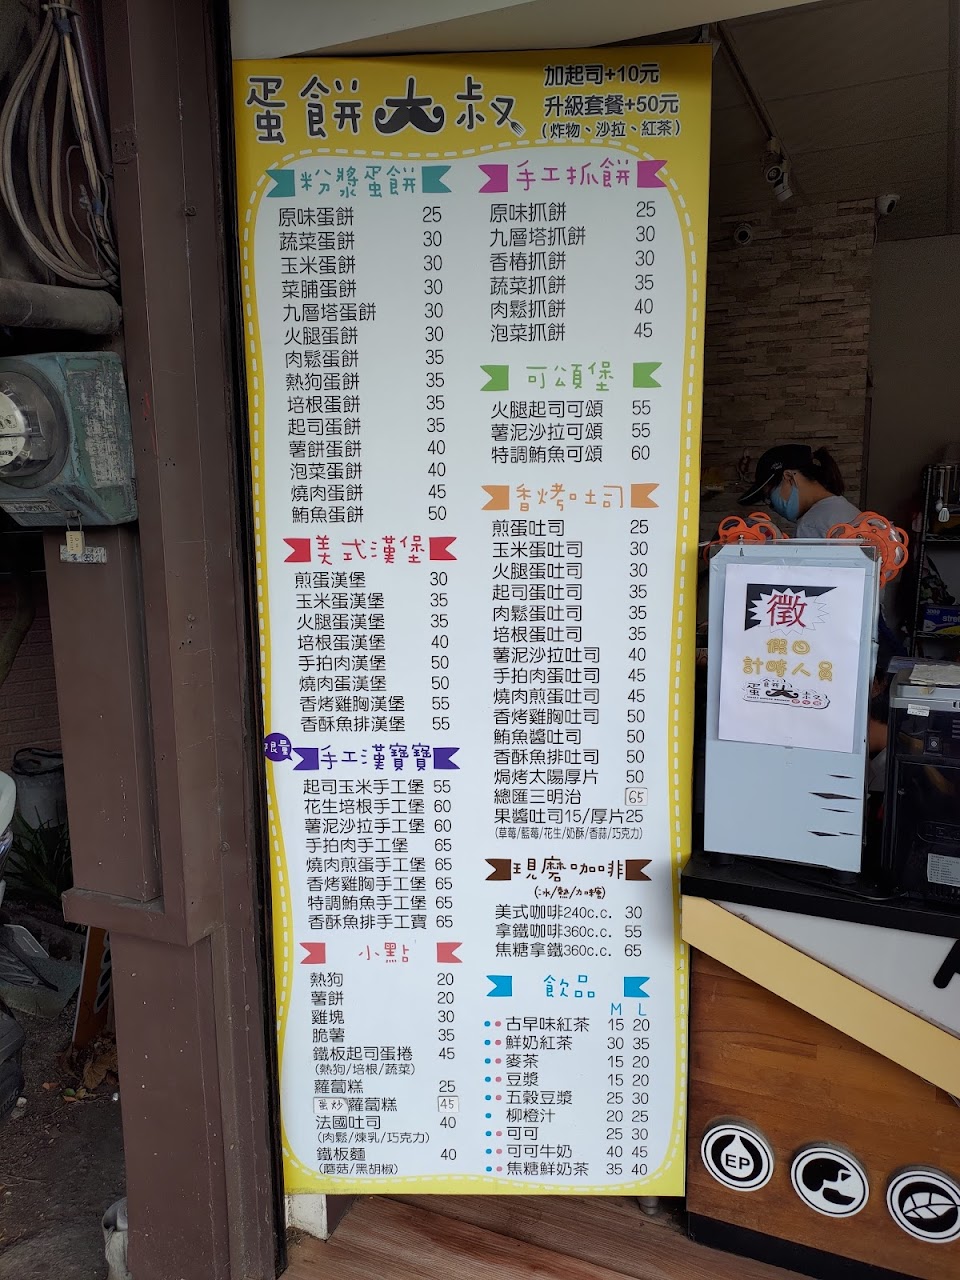 蛋餅大叔
加起司+10元
升級套餐+50元
(炸物、沙拉、紅茶)
粉漿蛋餅
原味蛋餅 25
蔬菜蛋餅 30
玉米蛋餅 30
菜脯蛋餅 30
九層塔蛋餅 30
火腿蛋餅 30
肉鬆蛋餅 35
熱狗蛋餅 35
培根蛋餅 35
起司蛋餅 35
薯餅蛋餅 40
泡菜蛋餅 40
燒肉蛋餅 45
鮪魚蛋餅 50
美式漢堡
煎蛋漢堡 30
玉米蛋漢堡 35
火腿蛋漢堡 35
培根蛋漢堡 40
手拍肉漢堡 50
燒肉蛋漢堡 50
香烤雞胸漢堡 55
香酥魚排漢堡 55
限量
手工漢寶寶
起司玉米手工堡 55
花生培根手工堡 60
薯泥沙拉手工堡 60
手拍肉手工堡 65
燒肉煎蛋手工堡 65
香烤雞胸手工堡 65
特調鮪魚手工堡 65
香酥魚排手工寶 65
小點
熱狗 20
薯餅 20
雞塊 30
脆薯 35
鐵板起司蛋捲 45
(熱狗/培根/蔬菜)
蘿蔔糕 25
蛋炒蘿蔔糕 45
法國吐司 40
(肉鬆/煉乳/巧克力)
鐵板麵 40
(蘑菇/黑胡椒)
手工抓餅
原味抓餅 25
九層塔抓餅 30
香椿抓餅 30
蔬菜抓餅 35
肉鬆抓餅 40
泡菜抓餅 45
可頌堡
火腿起司可頌 55
薯泥沙拉可頌 55
特調鮪魚可頌 60
香烤吐司
煎蛋吐司 25
玉米蛋吐司 30
火腿蛋吐司 30
起司蛋吐司 35
肉鬆蛋吐司 35
培根蛋吐司 35
薯泥沙拉吐司 40
手拍肉蛋吐司 45
燒肉煎蛋吐司 45
香烤雞胸吐司 50
鮪魚醬吐司 50
香酥魚排吐司 50
焗烤太陽厚片 50
總匯三明治 65
果醬吐司15/厚片25
(草莓/藍莓/花生/奶酥/香蒜/巧克力)
現磨咖啡
(冰/熱/加糖)
美式咖啡240c.c. 30
拿鐵咖啡360c.c. 55
焦糖拿鐵360c.c. 65
飲品
M L
古早味紅茶 15 20
鮮奶紅茶 30 35
麥茶 15 20
豆漿 15 20
五穀豆漿 25 30
柳橙汁 20 25
可可 25 30
可可牛奶 40 45
焦糖鮮奶茶 35 40
徵
假日
計時人員
蛋餅大叔
EP